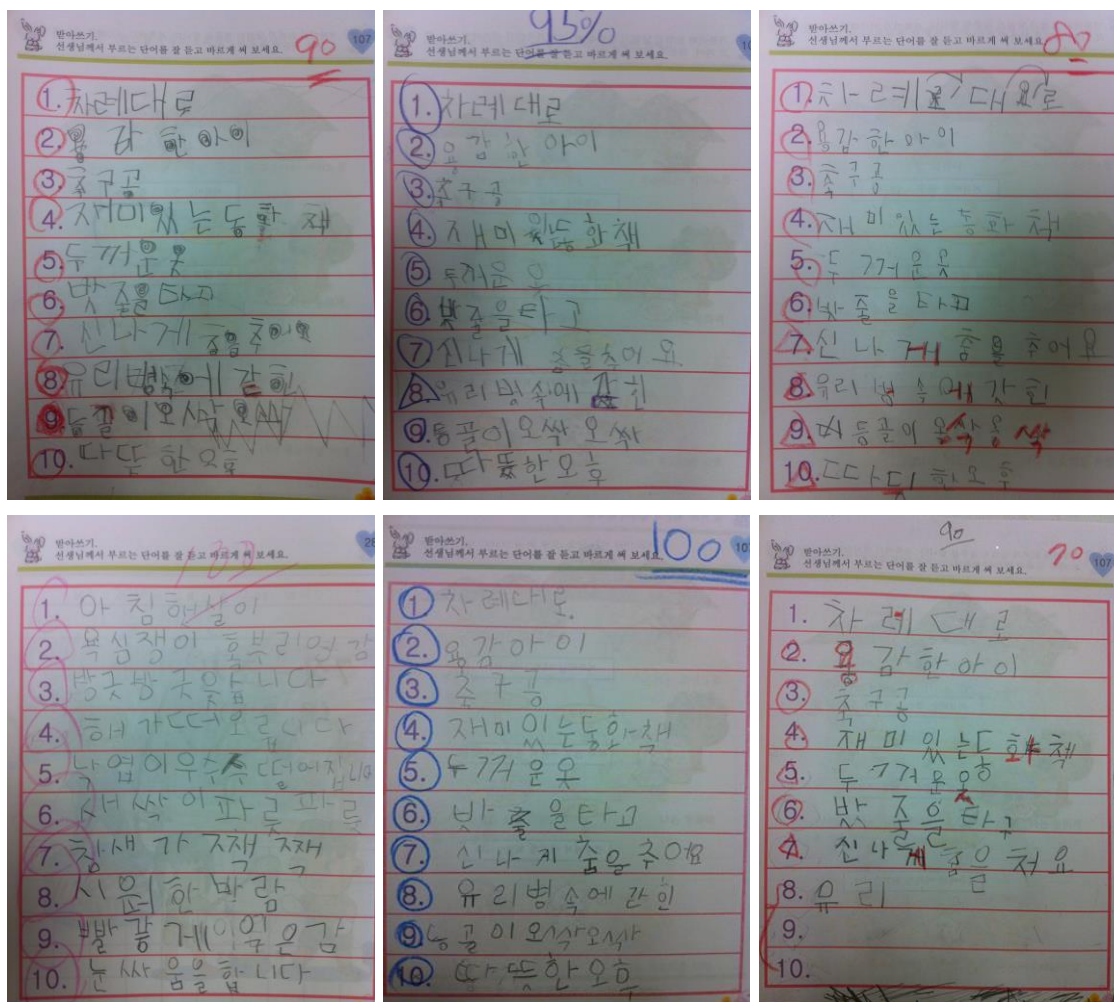 받아쓰기.
선생님께서 부르는 단어를 잘 듣고 바르게 써 보세요.
90
107
1. 차례대로
2. 용감한아이
3. 축구공
4. 재미있는동화 책
5. 두꺼운옷
6. 밧줄을타고
7. 신나게 춤을추어요
8. 유리병속에 갇힌
9. 등골이오싹오싹
10. 따뜻한오후
받아쓰기.
선생님께서 부르는 단어를 잘 듣고 바르게 써 보세요.
95%
1. 차례대로
2. 용감한 아이
3. 축구공
4. 재미있는동화책
5. 두꺼운 옷
6. 밧줄을타고
7. 신나게 춤을추어요
8. 유리병속에 갇힌
9. 등골이오싹오싹
10. 따뜻한오후
받아쓰기.
선생님께서 부르는 단어를 잘 듣고 바르게 써 보세요.
80
1. 차례대로
2. 용감한아이
3. 축구공
4. 재미있는동화책
5. 두꺼운옷
6. 밧줄을타고
7. 신나게 춤을 추어요
8. 유리병속에 갓힌
9. 등골이
10. 한오후
받아쓰기.
선생님께서 부르는 단어를 잘 듣고 바르게 써 보세요.
1. 아침햇살이
2. 욕심쟁이 혹부리영감
3. 방긋방긋웃습니다
4. 해가떠오릅니다
5. 낙엽이우수수 떨어집니다
6. 새싹이파릇파릇
7. 참새가 짹짹
8. 시원한바람
9. 빨갛게익은감
10. 눈싸움을합니다
받아쓰기.
선생님께서 부르는 단어를 잘 듣고 바르게 써 보세요.
100
1. 차례대로
2. 용감아이
3. 축구공
4. 재미있는동화책
5. 두꺼운옷
6. 밧줄을타고
7. 신나게 춤을추어요
8. 유리병속에 갇힌
9. 등골이오싹오싹
10. 따뜻한오후
받아쓰기.
선생님께서 부르는 단어를 잘 듣고 바르게 써 보세요.
90
70
107
1. 차례대로
2. 용감한아이
3. 축구공
4. 재미있는동화책
5. 두꺼운옷
6. 밧줄을타구
7. 신나게 춤을 처요
8. 유리
9.
10.